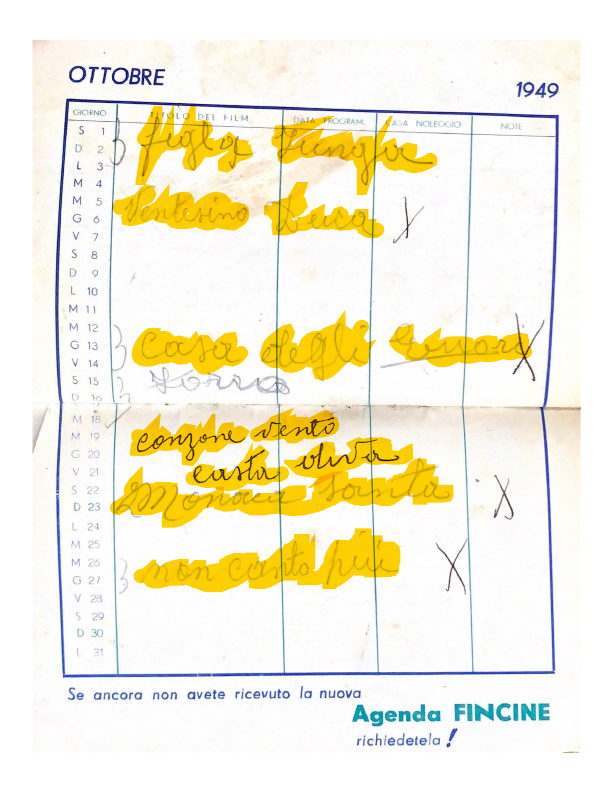 OTTOBRE
1949
GIORNO TITOLO DEL FILM DATA PROGRAM. CASA NOLEGGIO NOTE
S 1
D 2 figlia Jungla
L 3
M 4
M 5
G 6 Ventesimo Luca X
V 7
S 8
D 9
L 10
M 11
M 12
G 13 casa degli X
V 14
S 15
D 16
M 18
M 19 canzone vento
G 20
V 21 casta oliva
S 22 Monaca santa X
D 23
L 24
M 25
M 26 non canto più X
G 27
V 28
S 29
D 30
L 31
Se ancora non avete ricevuto la nuova
Agenda FINCINE
richiedetela !